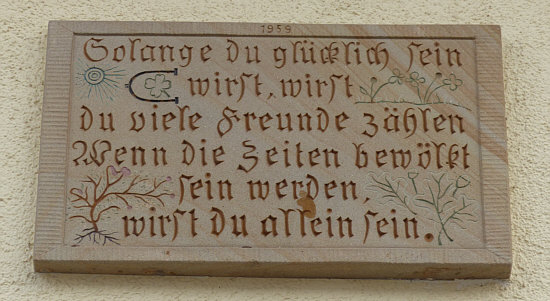 1959
Solange du glücklich sein
wirst, wirst
du viele Freunde zählen
Wenn die Zeiten bewölkt
sein werden,
wirst du allein sein.